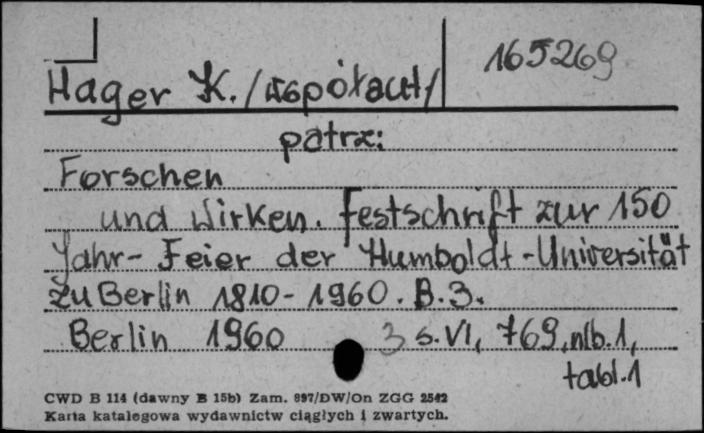 165269
Hager K. /współaut/
patrz:
Forschen
und Wirken. Festschrift zur 150
Jahr- Feier der Humboldt-Universität
zu Berlin 1810-1960. B.3.
Berlin 1960 3 s. VI, 769, nlb. 1,
tabl. 1
CWD B 114 (dawny B 15b) Zam. 897/DW/On ZGG 2542
Karta katalogowa wydawnictw ciągłych i zwartych.